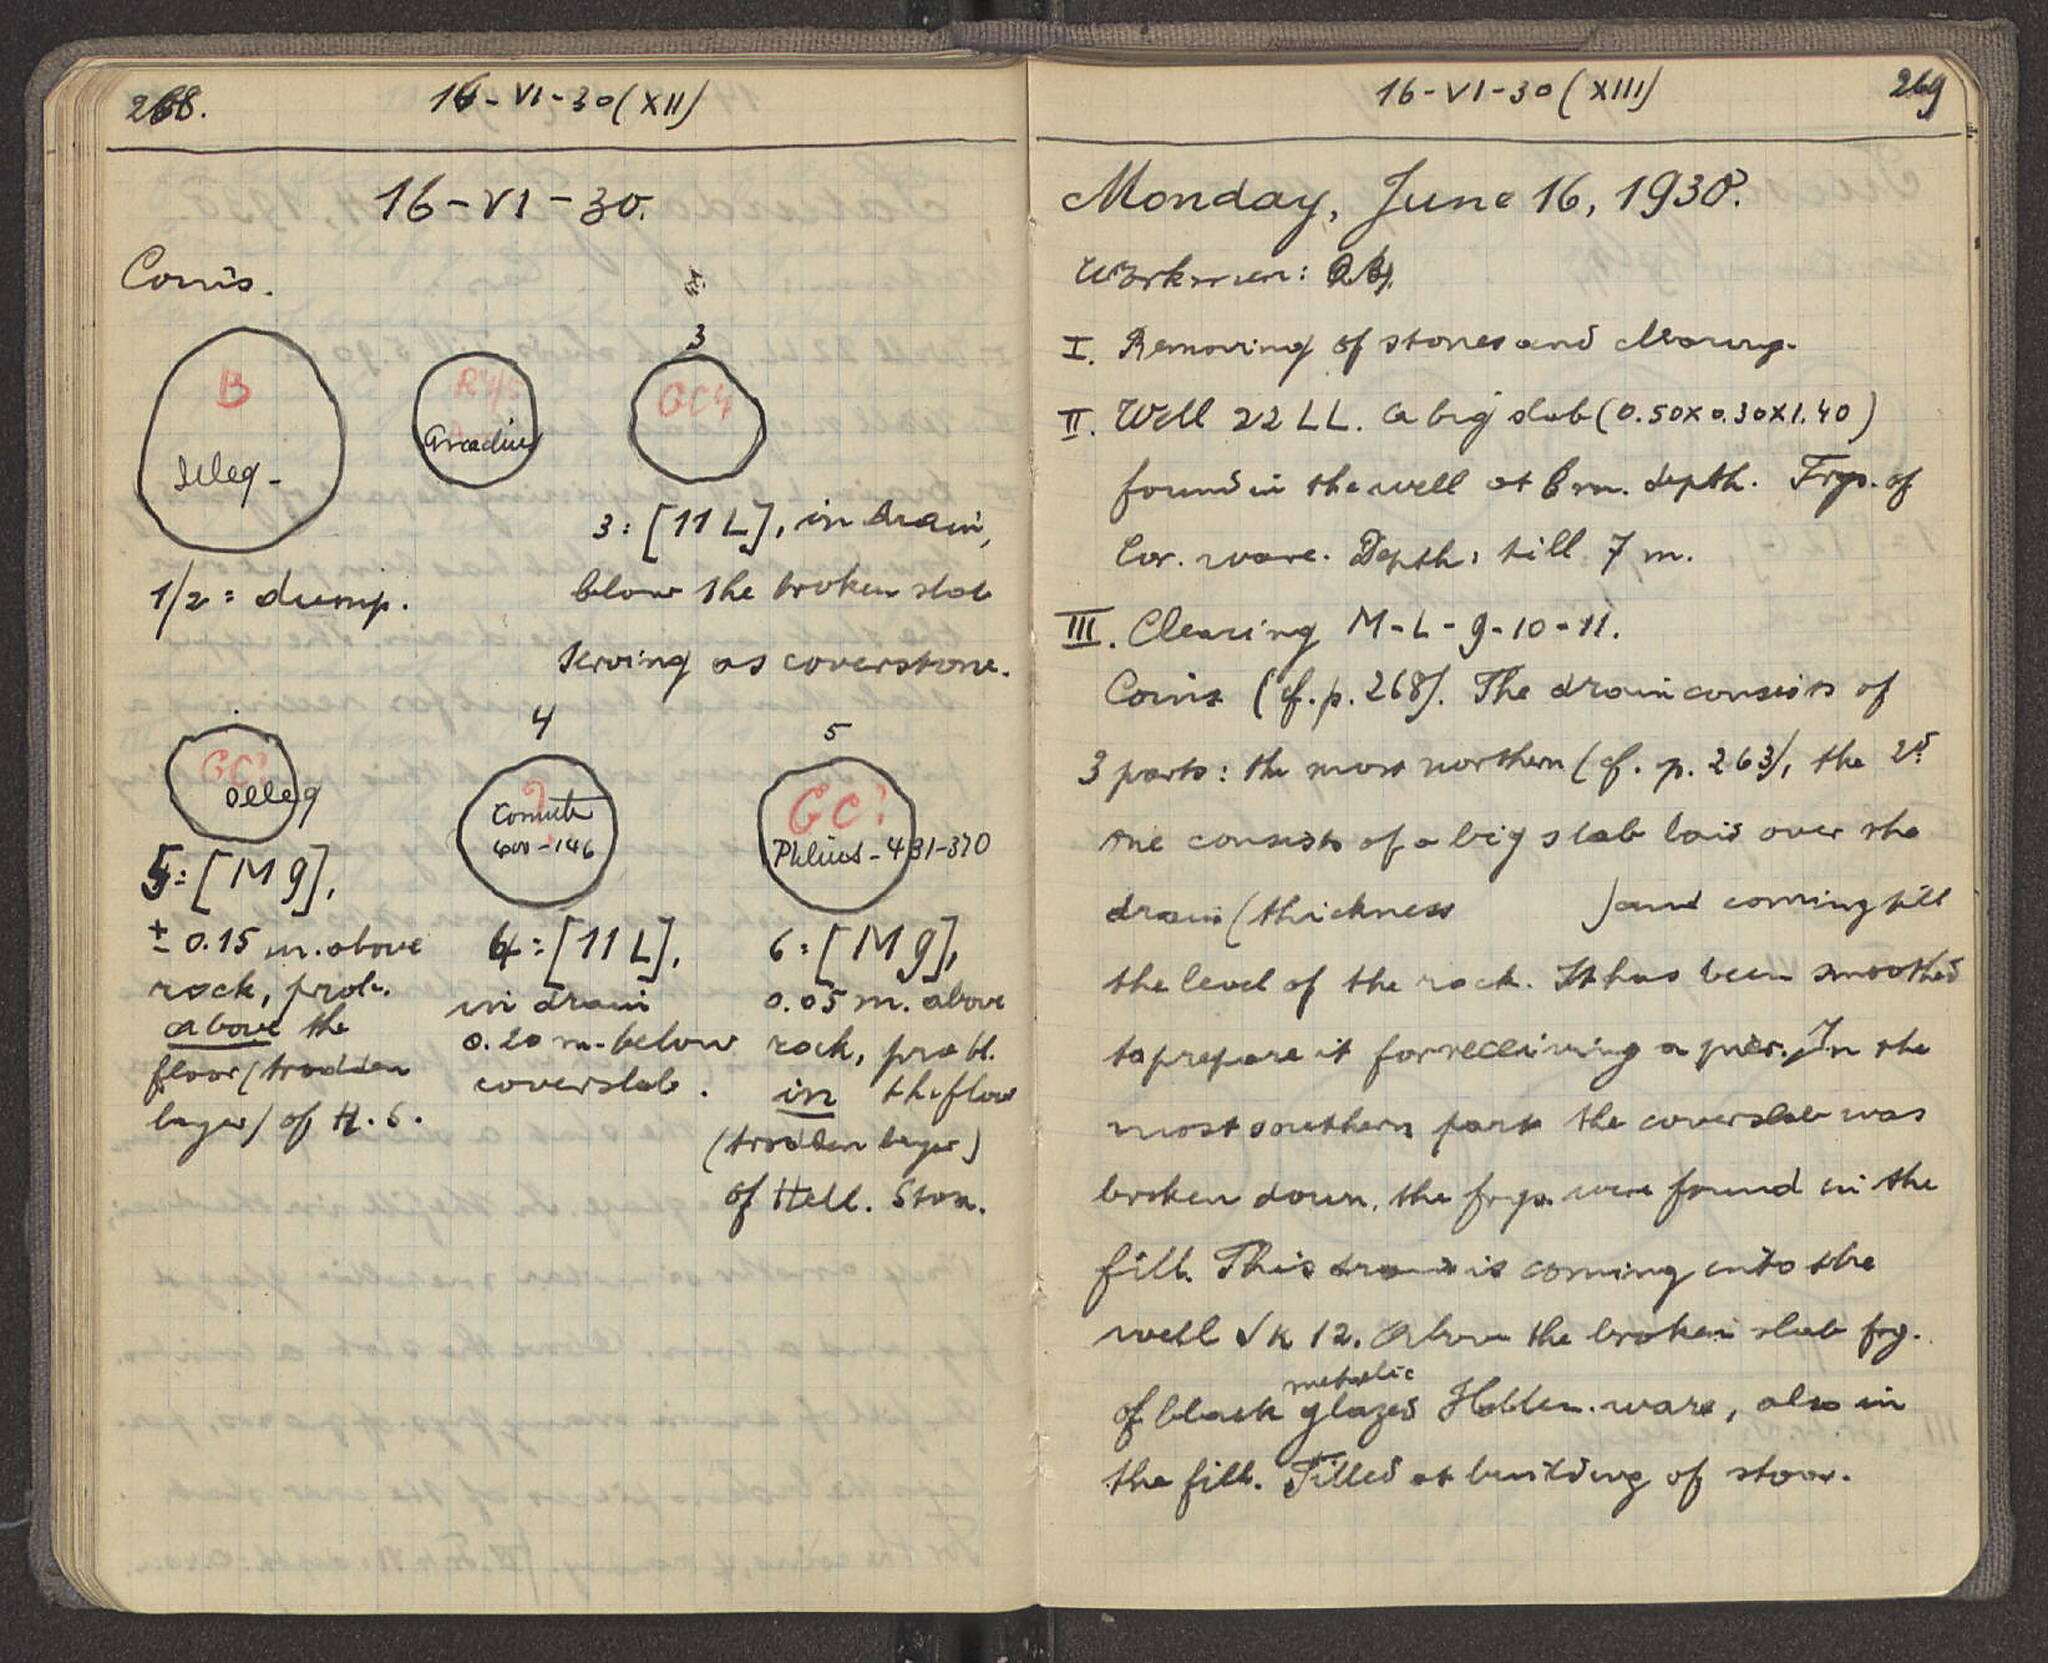 268.
16-VI-30 (XII)
16-VI-30.
Coins.
B
Illeg-
R4/5
Arcadius
3
GC4
1/2 = dump.
3: [11 L], in drain,
below the broken slab
serving as coverstone.
GC?
Illeg
5: [M 9],
± 0.15 m. above
rock, prob.
above the
floor (trodden
layer) of H.S.
4
?
Corinth
400-146
4: [11 L],
in drain
0.20 m. below
coverslab.
5
GC?
Phlius - 431-370
6: [M 9],
0.05 m. above
rock, probl.
in the floor
(trodden layer)
of Hell. Stoa.
16-VI-30 (XIII)
269
Monday, June 16, 1930.
Workmen:
I. Removing of stones and clearing.
II. Well 22 LL. A big slab (0.50x0.30x1.40)
found in the well at 6 m. depth. Frgs. of
Cor. ware. Depth: till 7 m.
III. Clearing M-L-9-10-11.
Coins (cf. p. 268). The drain consists of
3 parts: the most northern (cf. p. 263), the 2d
one consists of a big slab laid over the
drain (thickness ) and coming till
the level of the rock. It has been smoothed
to prepare it for receiving a pier. In the
most southern part the coverslab was
broken down, the frgs. were found in the
fill. This drain is coming into the
well K 12. Above the broken slab frg.
of black metallic glazed Hellen. ware, also in
the fill. Filled at building of stoa.